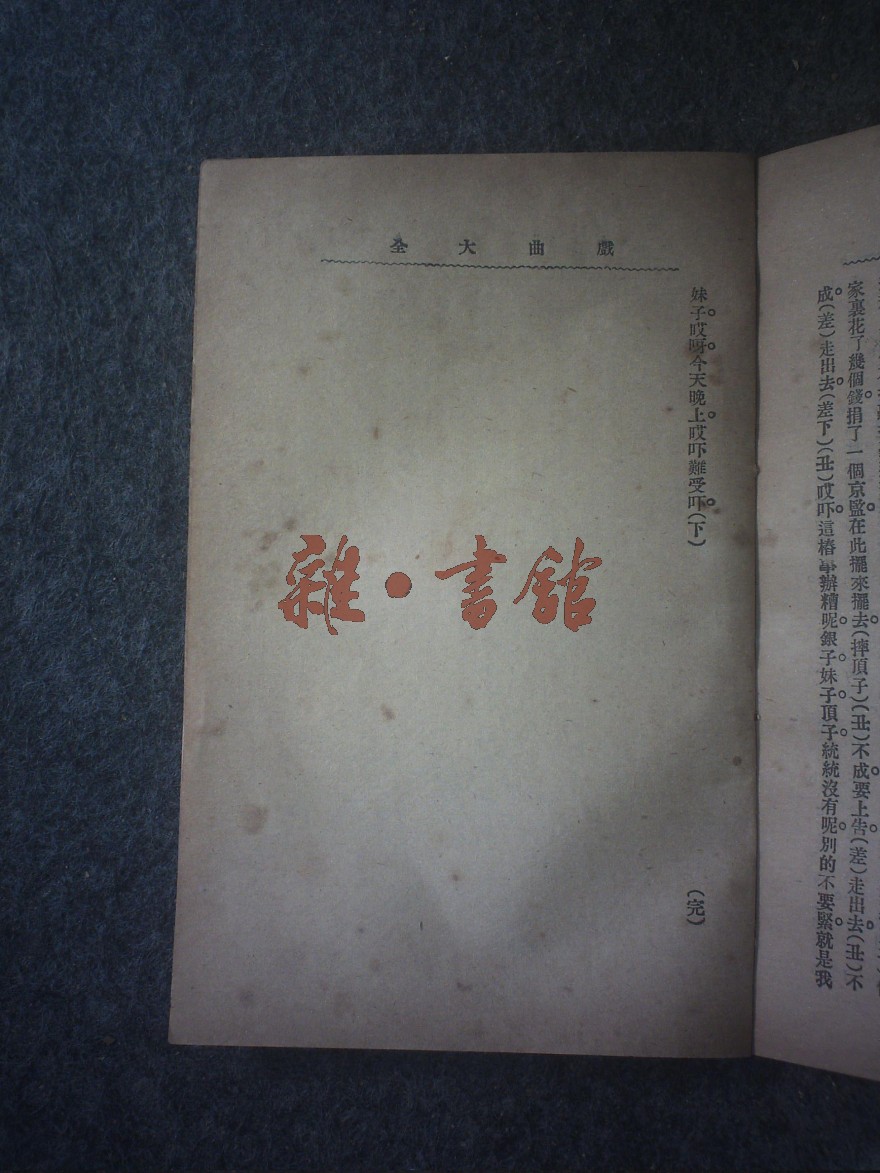 家裏花了幾個錢捐了一個京監在此擺來擺去(摔頂子)(丑)不成要上告(差)走出去(丑)不
成(差)走出去(差下)(丑)哎吓這樁事辦糟呢銀子妹子頂子統統沒有呢別的不要緊就是我
戲曲大全
妹子哎呀今天晚上哎吓難受吓(下)
(完)
雜·書館